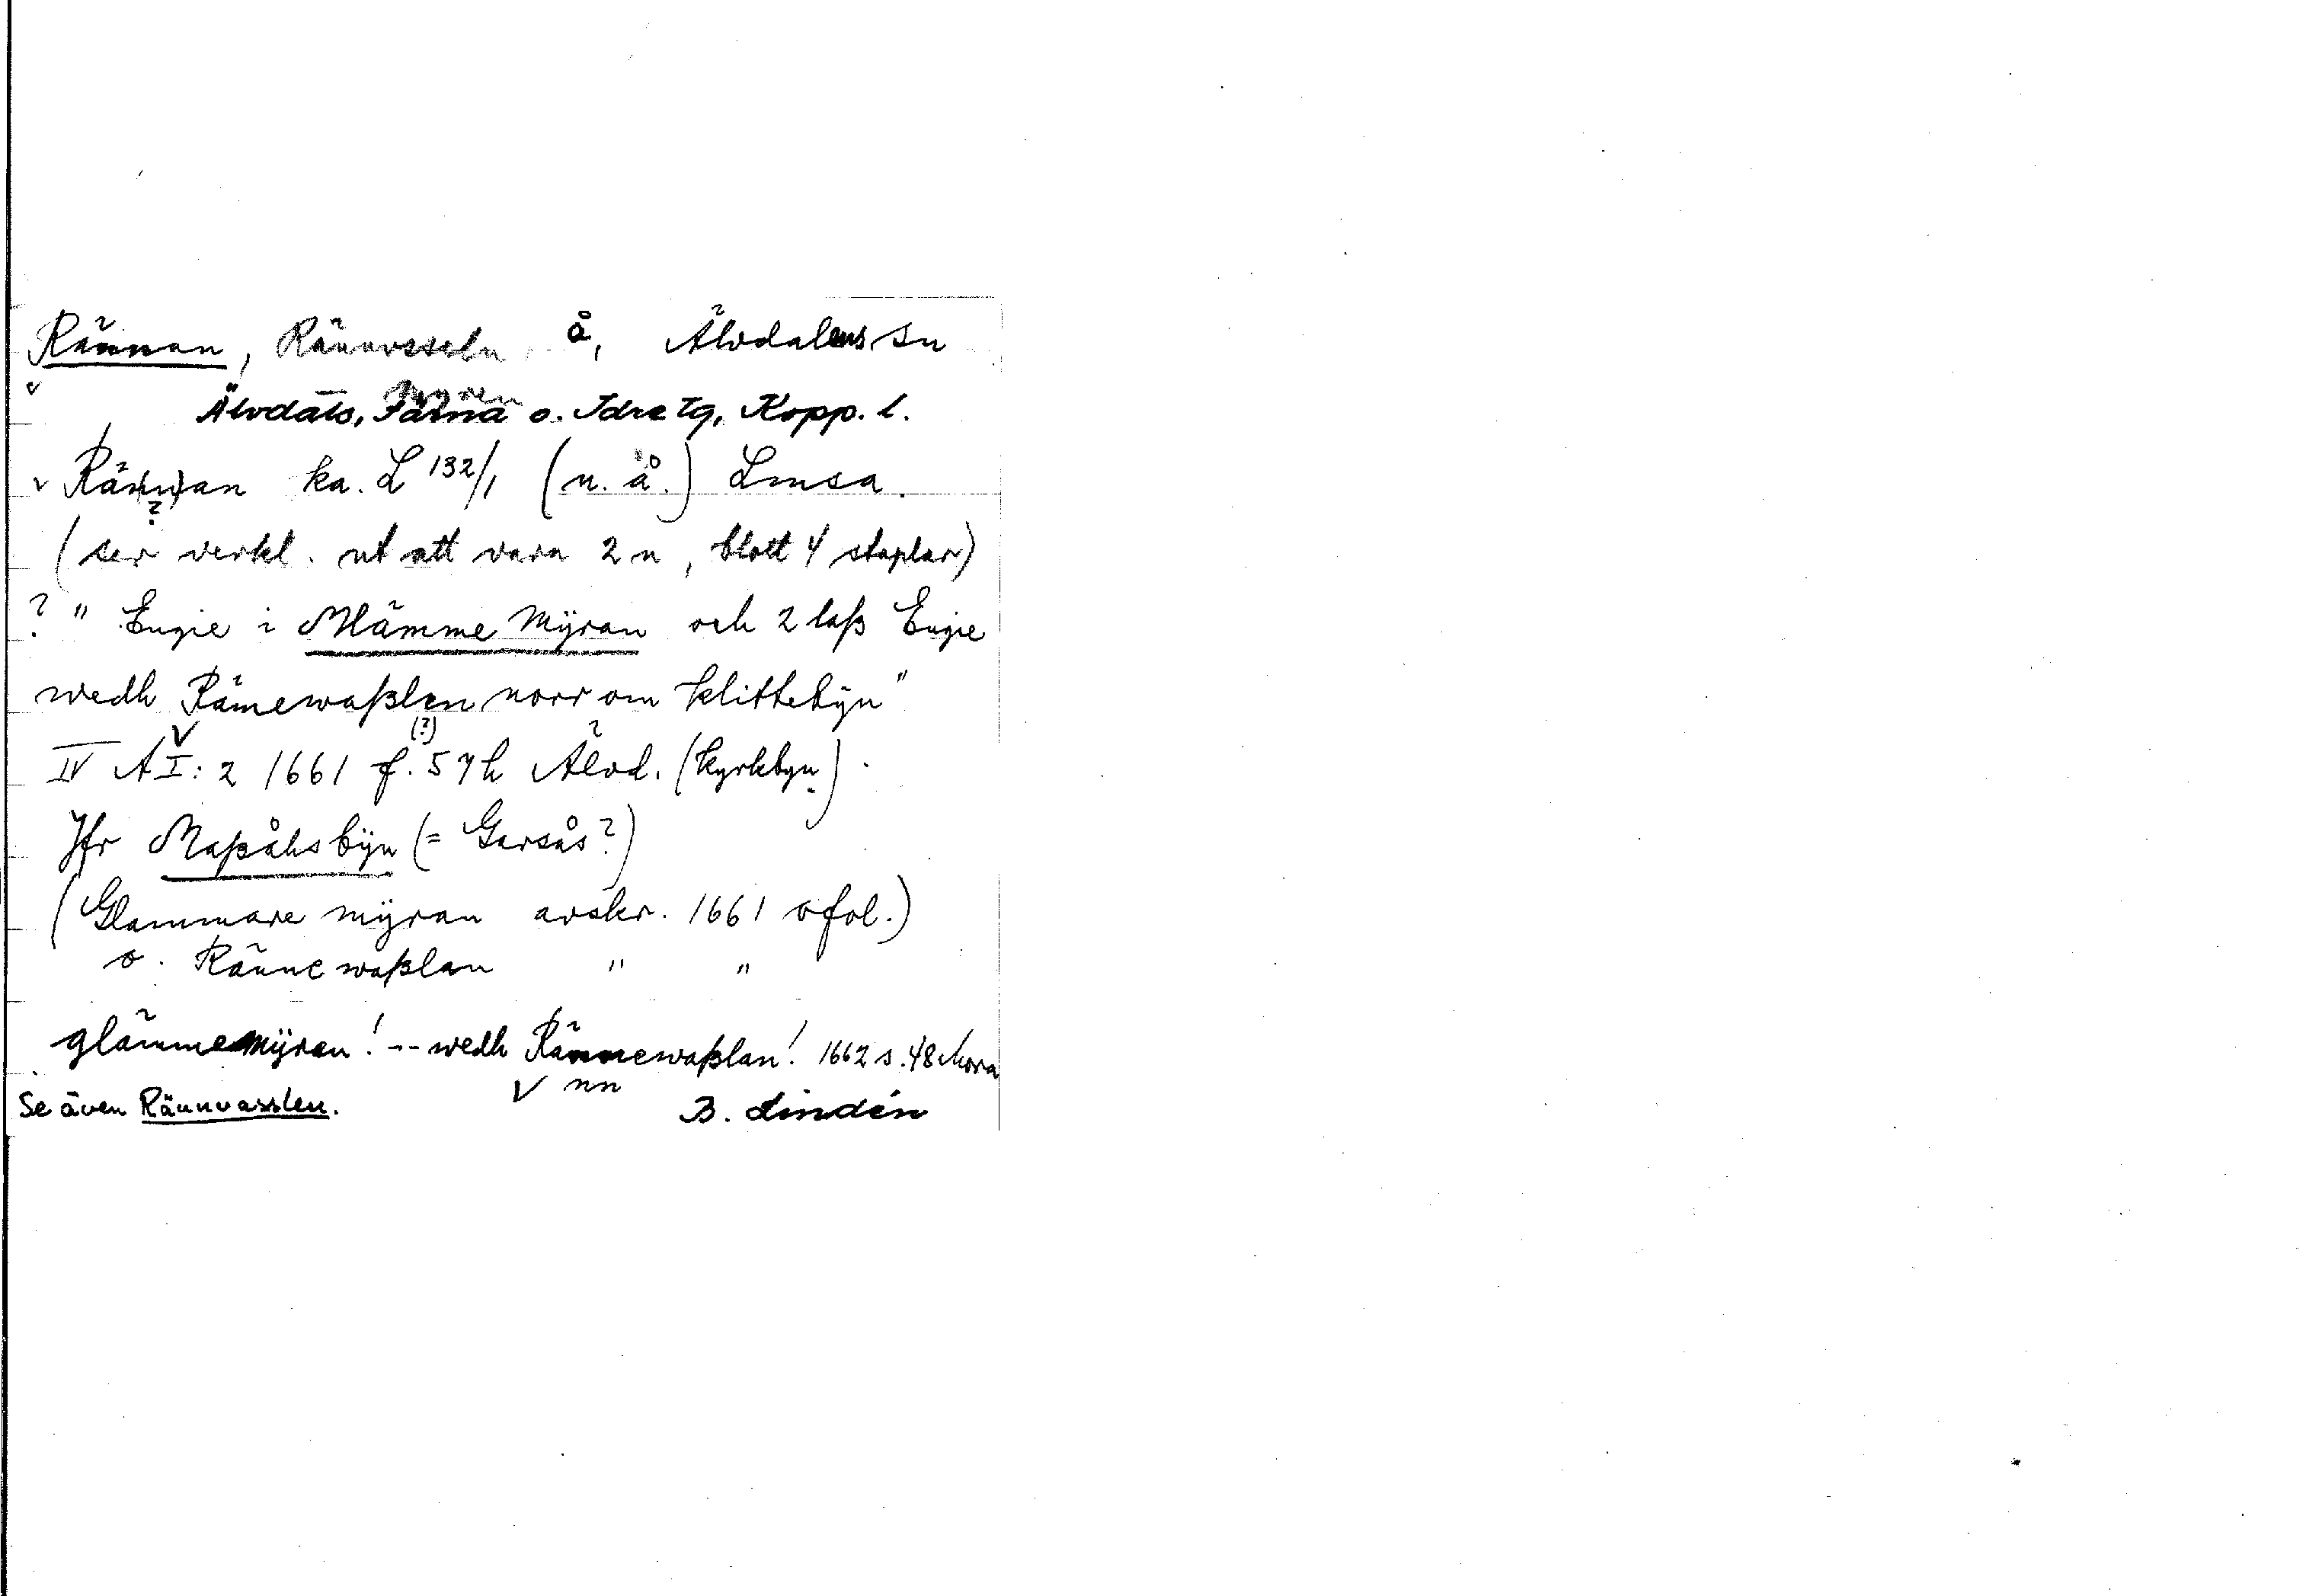 Rännan, Rännvasseln, å, Älvdalens sn
Älvdals, Särna o. Idre tg, Kopp. l.
v Rännan ka. L 132/1 (n. å.) Lmsa.
?
(ser verkl. ut att vara 2 n, blott 4 staplar)
? " Engie i Mlämme Mÿran och 2 laß Engie
wedh Rämewaßlen norr om klittebÿn"
(?)
IV A I: 2 1661 f. 57 h Älvd. (kyrkbyn).
Jfr Maßåhsbÿn (= Garsås?)
(Glammare mÿran avskr. 1661 ofol.)
o. Ränne waßlan " "
glämmemÿran! -- wedh Rännewaßlan! 1662 s. 48 Mora
v nn
Se även Rännvasslen.
B. Lindén